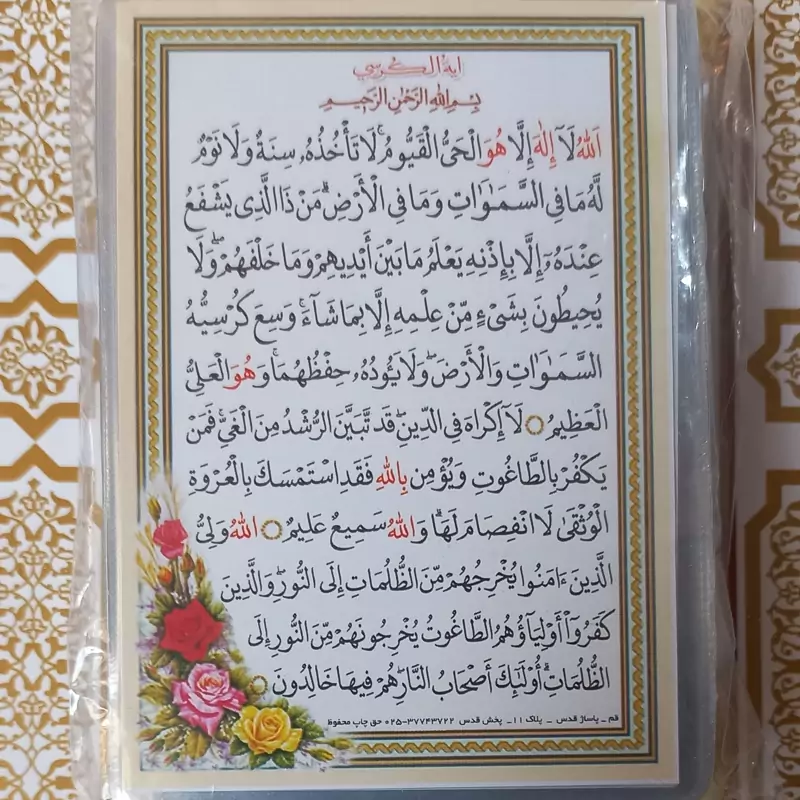 آیة الکرسي
بِسْمِ اللهِ الرَّحْمٰنِ الرَّحِيمِ
اَللهُ لَآ إِلٰهَ إِلَّا هُوَ الْحَىُّ الْقَيُّومُ ۚ لَا تَأْخُذُهُۥ سِنَةٌ وَلَا نَوْمٌ
لَّهُ مَا فِى السَّمَـٰوَاتِ وَمَا فِى الْأَرْضِ ۗ مَنْ ذَا الَّذِى يَشْفَعُ
عِنْدَهُۥٓ إِلَّا بِإِذْنِهِ يَعْلَمُ مَا بَيْنَ أَيْدِيهِمْ وَمَا خَلْفَهُمْ ۖ وَلَا
يُحِيطُونَ بِشَىْءٍ مِّنْ عِلْمِهِ إِلَّا بِمَا شَآءَ ۚ وَسِعَ كُرْسِيُّهُ
السَّمَـٰوَاتِ وَالْأَرْضَ ۖ وَلَا يَـُٔودُهُۥ حِفْظُهُمَا ۚ وَهُوَ الْعَلِىُّ
الْعَظِيمُ ۝ لَآ إِكْرَاهَ فِى الدِّينِ ۖ قَد تَّبَيَّنَ الرُّشْدُ مِنَ الْغَىِّ ۚ فَمَنْ
يَكْفُرْ بِالطَّاغُوتِ وَيُؤْمِن بِاللهِ فَقَدِ اسْتَمْسَكَ بِالْعُرْوَةِ
الْوُثْقَىٰ لَا انْفِصَامَ لَهَا ۗ وَاللهُ سَمِيعٌ عَلِيمٌ ۝ اَللهُ وَلِىُّ
الَّذِينَ ءَامَنُوا يُخْرِجُهُمْ مِّنَ الظُّلُمَاتِ إِلَى النُّورِ ۖ وَالَّذِينَ
كَفَرُوٓاْ أَوْلِيَآؤُهُمُ الطَّاغُوتُ يُخْرِجُونَهُمْ مِّنَ النُّورِ إِلَى
الظُّلُمَاتِ ۗ أُوْلَـٰٓئِكَ أَصْحَابُ النَّارِ ۖ هُمْ فِيهَا خَالِدُونَ ۝
قم ـ پاساژ قدس ـ پلاک ۱۱ـ پخش قدس ۳۷۷۴۳۷۲۲-۰۲۵ حق چاپ محفوظ